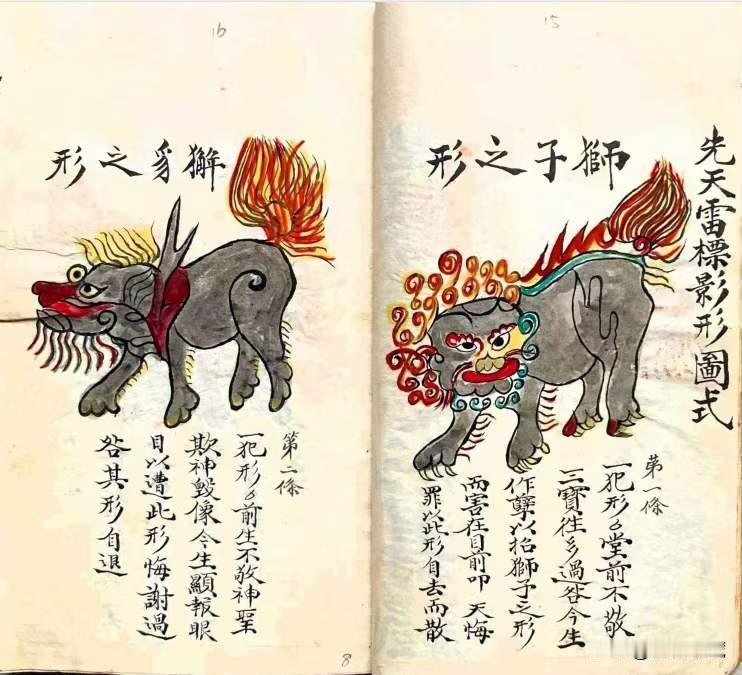 15
先天雷標影形圖式
獅子之形
第一條
一犯形〻堂前不敬
三寶往乡過咎今生
作孽以招獅子之形
而害在目前叩 天悔
罪以此形自去而散
16
獬豸之形
第二條
一犯形〻前生不敬神聖
欺神毀像今生顯報眼
目以遭此形悔謝過
咎其形自退
8